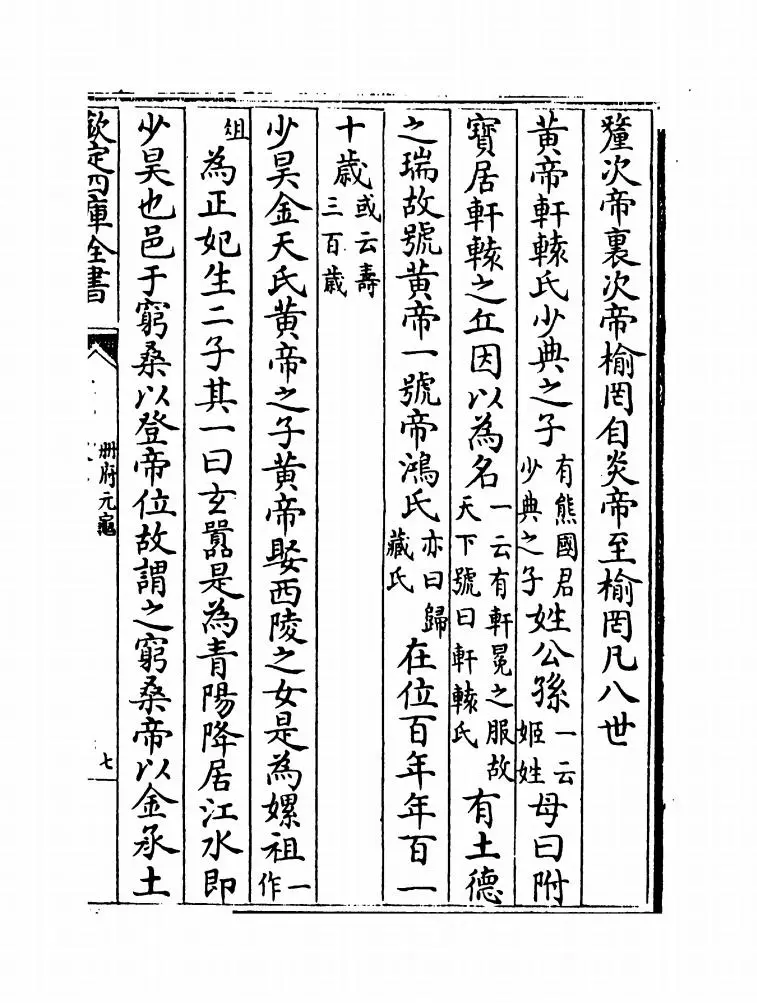 釐次帝裏次帝榆罔自炎帝至榆罔凡八世
黄帝軒轅氏少典之子有熊國君少典之子姓公孫一云姬姓母曰附
寶居軒轅之丘因以為名一云有軒冕之服故天下號曰軒轅氏有土德
之瑞故號黄帝一號帝鴻氏亦曰歸藏氏在位百年年百一
十歲或云壽三百歲
少昊金天氏黄帝之子黄帝娶西陵之女是為嫘祖一作
俎為正妃生二子其一曰玄囂是為青陽降居江水即
少昊也邑于窮桑以登帝位故謂之窮桑帝以金承土
欽定四庫全書
冊府元龜
七